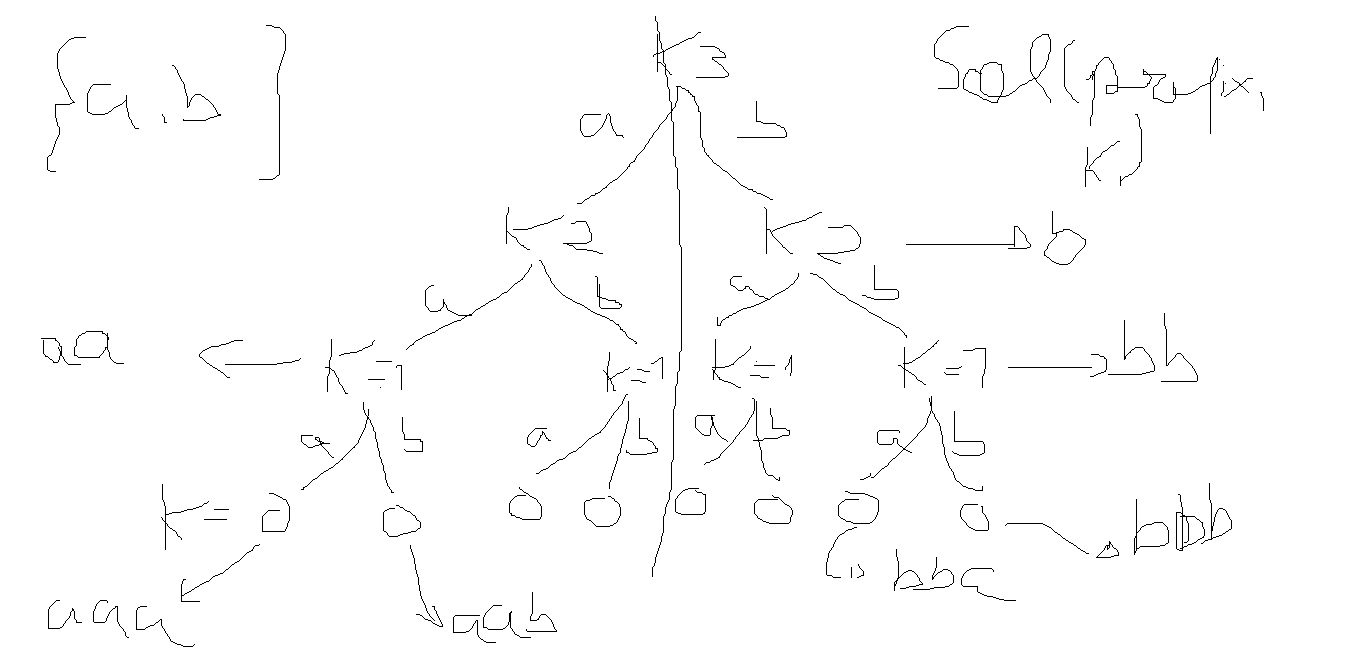 {a,b}
K 3
Sol(prefix,
K)
a b
K=2 K=2 → b
a b a b
aa K=1 K=1 K=1 K=1 bb
a b a b a b a b
K=0 0 0 0 0 0 0 0 bbb
bba
aaa aab